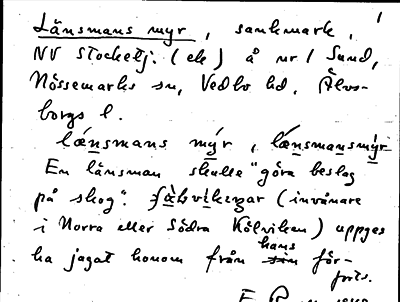 1
Länsmans myr, sankmark,
NV Stocketj. (ek) å nr 1 Sund,
Nössemarks sn, Vedbo hd, Älvs-
borgs l.
lǽnsmans mýr, lǽnsmansmỳr
En länsman skulle "göra beslag
på skog". (invånare
i Norra eller Södra Kölviken) uppges
ha jagat honom från sin hans för-